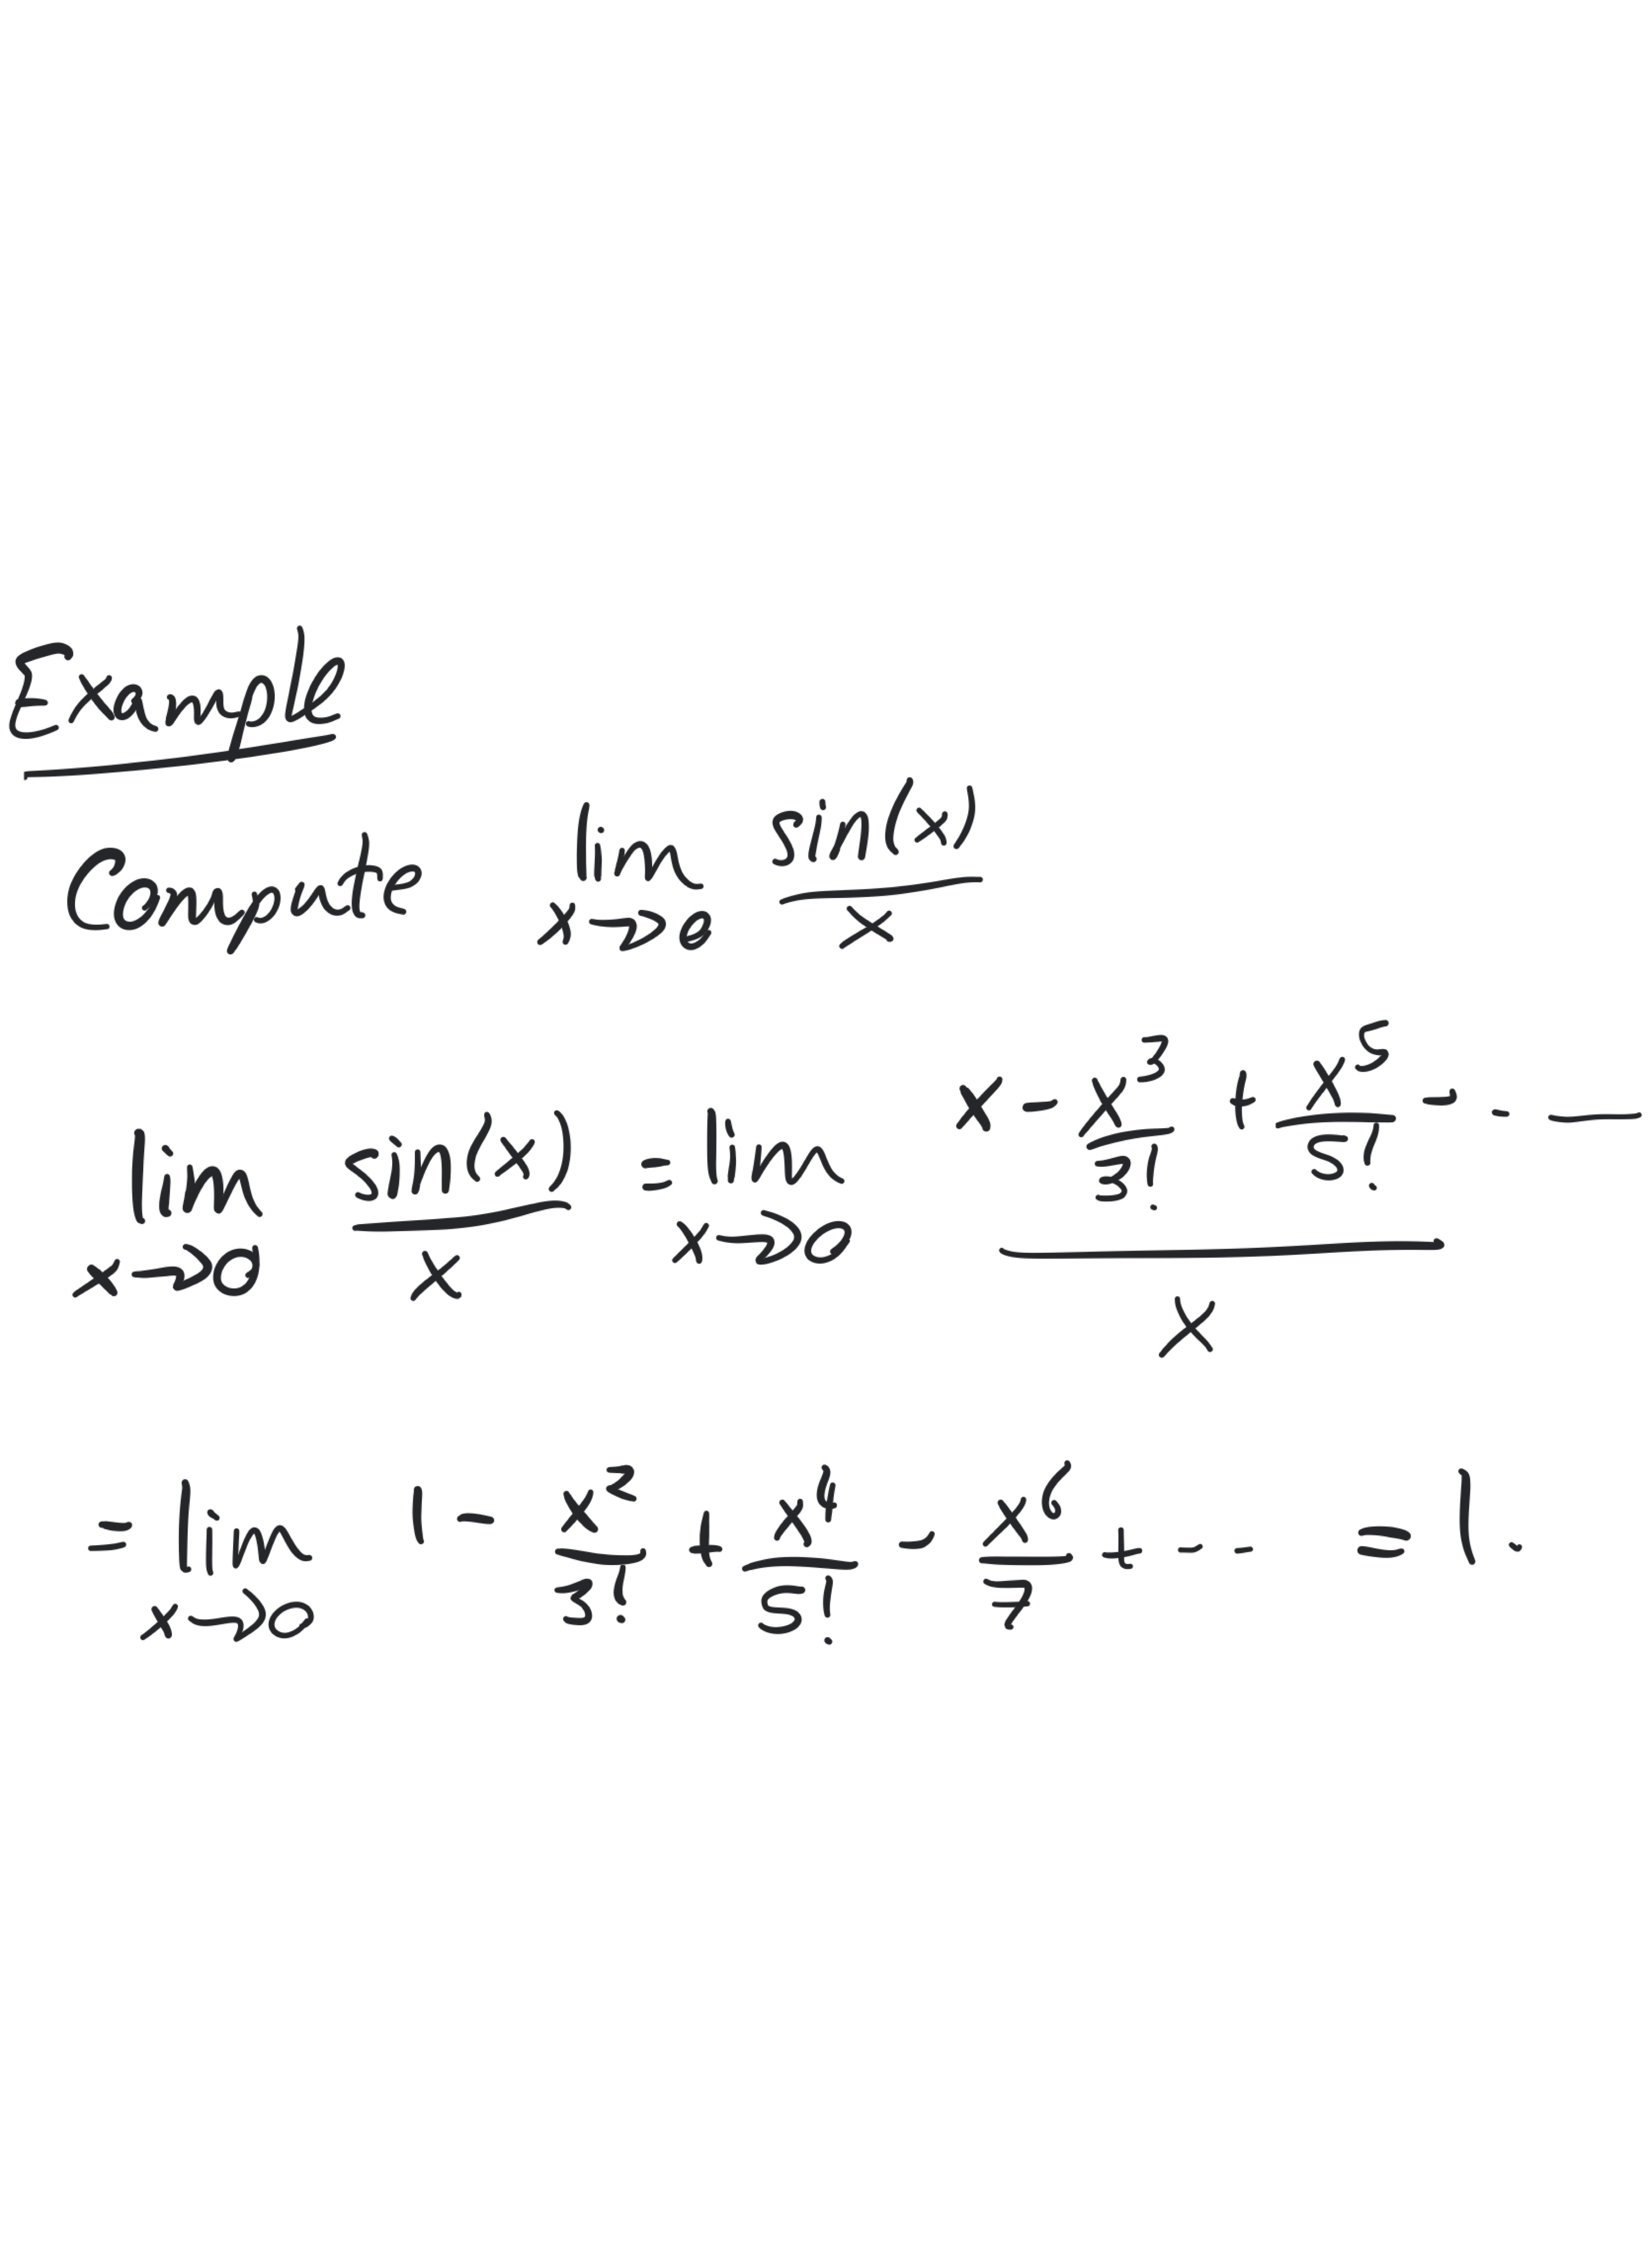 Example
Compute lim x→0 sin(x)/x
lim x→0 sin(x)/x = lim x→0 (x - x³/3! + x⁵/5! - - -)/x
= lim x→0 1 - x²/3! + x⁴/5! - x⁶/7 + - - = 1.